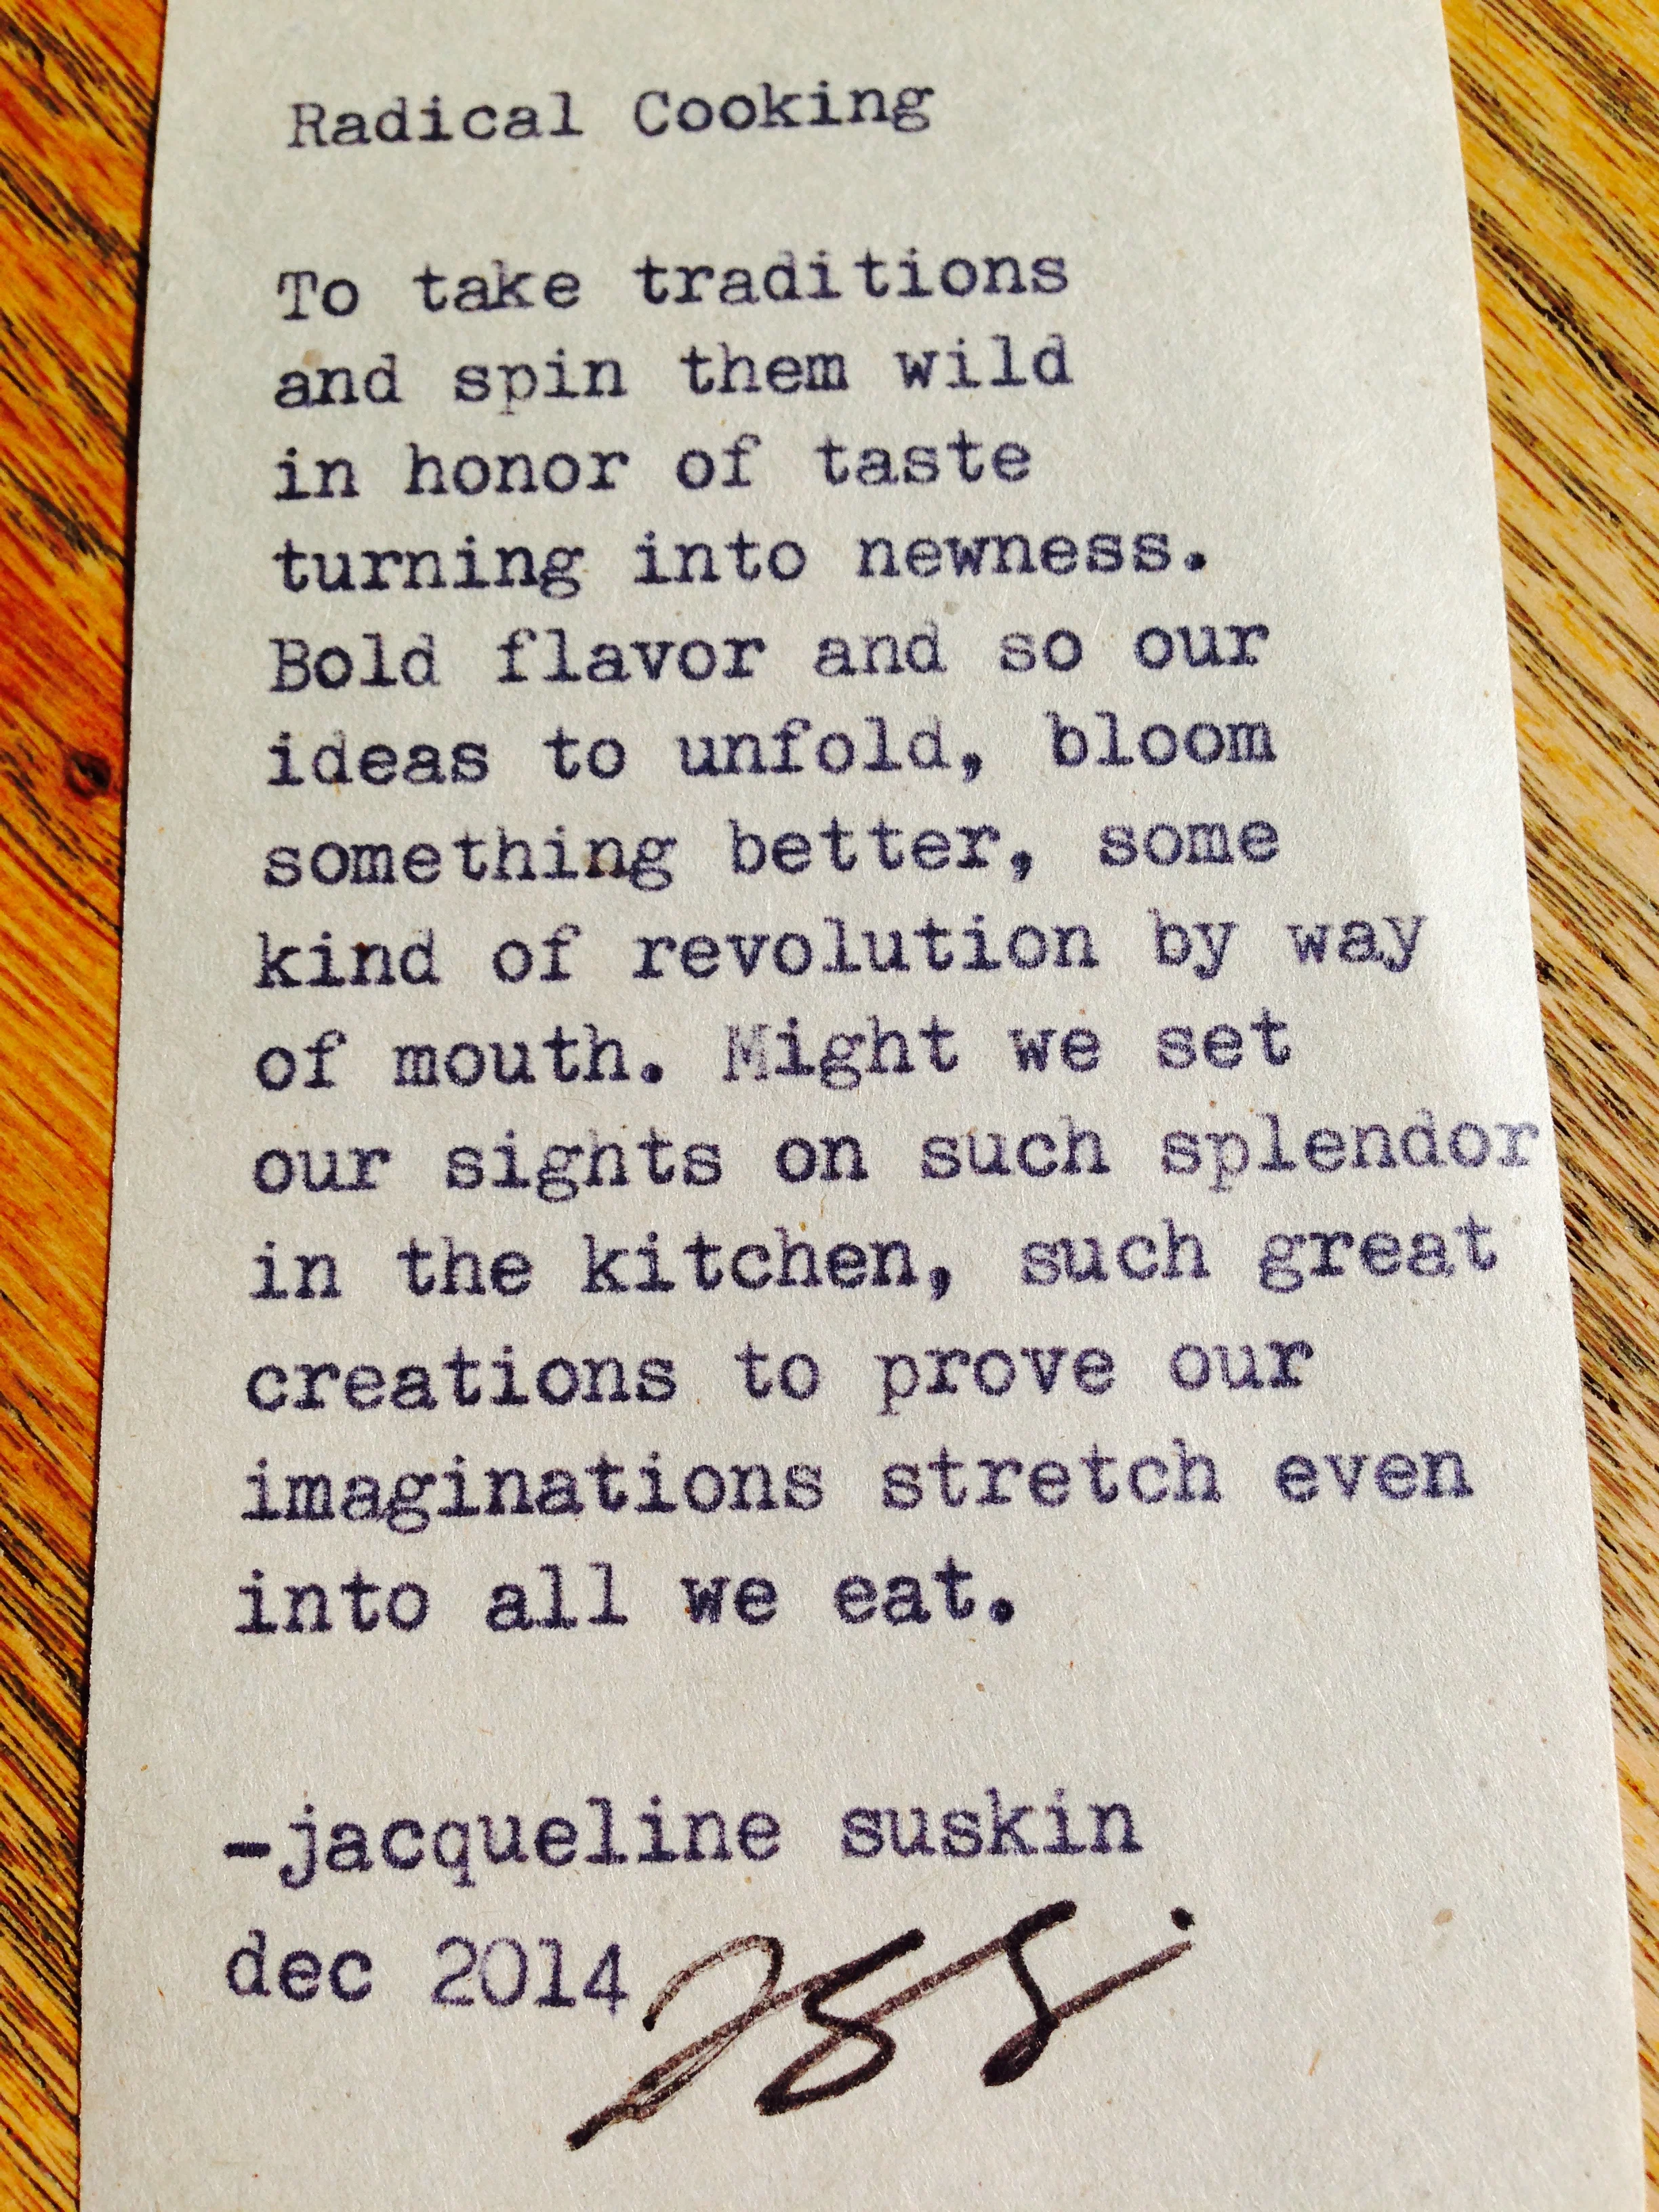 Radical Cooking
To take traditions
and spin them wild
in honor of taste
turning into newness.
Bold flavor and so our
ideas to unfold, bloom
something better, some
kind of revolution by way
of mouth. Might we set
our sights on such splendor
in the kitchen, such great
creations to prove our
imaginations stretch even
into all we eat.
-jacqueline suskin
dec 2014